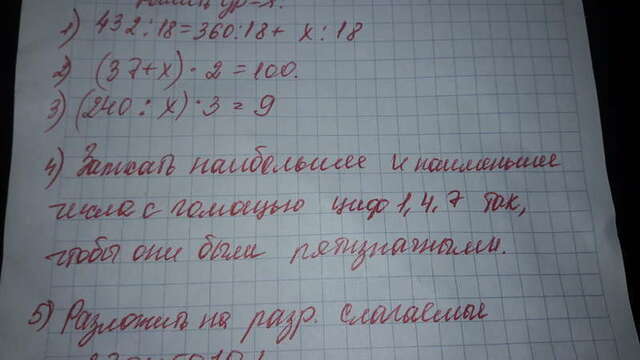 1) 432:18=360:18+ x:18
2) (37+x)·2=100.
3) (240:x)·3=9
4) Записать наибольшие и наименьшие
числа с помощью цифр 1,4,7 так,
чтобы они были пятизначными.
5) Разложить на разр. слагаемые